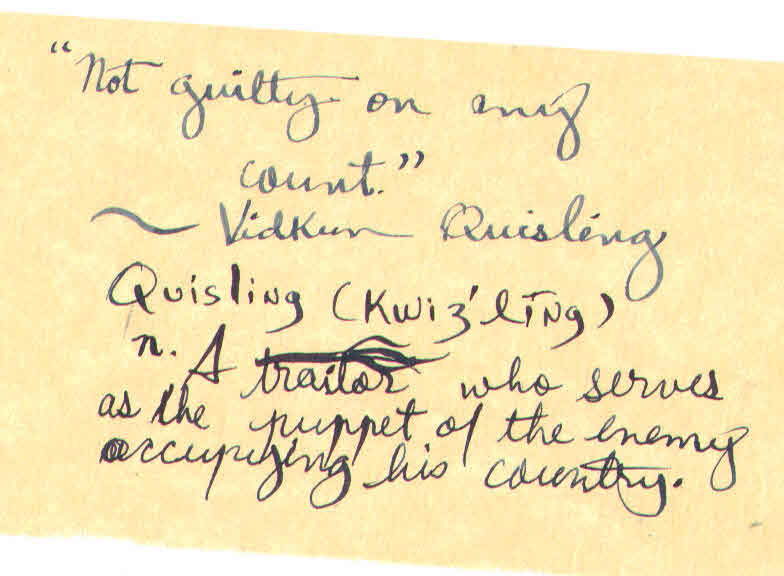 "Not guilty on any
count."
~ Vidkun Quisling
Quisling (Kwiz'lĭng)
n. A traitor who serves
as the puppet of the enemy
occupying his country.